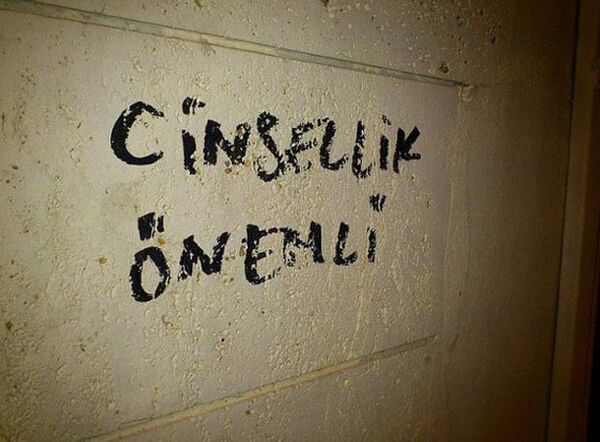 CİNSELLİK
ÖNEMLİ